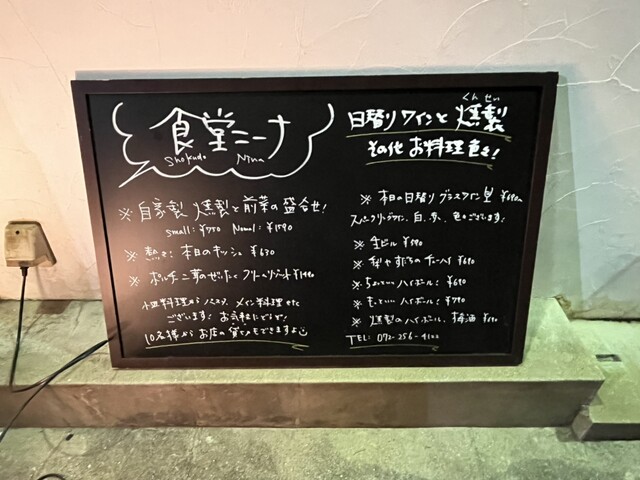 食堂ニーナ
Shokudo Nina
※ 自家製 燻製と前菜の盛合せ!
small: ¥750 Nomal: ¥1590
※ 熱々! 本日のキッシュ ¥630
※ ポルチーニ茸のぜいたくクリームリゾット
小皿料理から パスタ、メイン料理 etc
ございます! お気軽にどうぞ!
10名様から お店の貸切もできますよ
くんせい
日替りワインと 燻製
その他 お料理 色々!
※ 本日の日替り グラスワイン
スパークリングワイン、白、赤、色々ございます!
※ 生ビール ¥590
※ チューハイ ¥690
※ ハイボール: ¥690
※ ハイボール: ¥790
※ 燻製のハイボール、梅酒
TEL: 072-256-4122